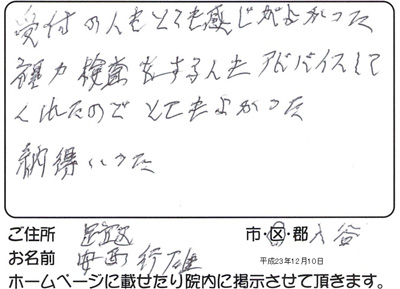 受付の人もとても感じがよかった
検査をする人もアドバイスして
くれたのでとてもよかった
納得いった
ご住所 足立区 市・区・郡 入谷
お名前 安西 行雄 平成23年12月10日
ホームページに載せたり院内に掲示させて頂きます。